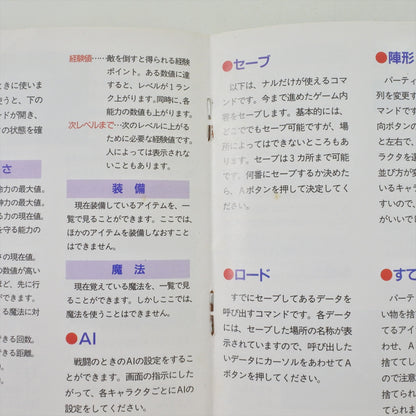 ときに使いま
使うと、下の
ンドが開き、
の状態を確
さ
命力の最大値。
神力の最大値。
を守る能力の
の現在値。
の数値が高い
ほど、先に行
ができます。
る魔法に対
できる回数。
できる距離。
経験値……敵を倒すと得られる経験
ポイント。ある数値に達
すると、レベルが1ラン
ク上がります。同時に、各
能力の数値も上がります。
次レベルまで…次のレベルに上がる
ために必要な経験値です。
人によっては表示されな
いこともあります。
装備
現在装備しているアイテムを、一
覧で見ることができます。ここでは、
ほかのアイテムを装備しなおすこと
はできません。
魔法
現在覚えている魔法を、一覧で見
ることができます。しかしここでは、
魔法を使うことはできません。
●AI
戦闘のときのAIの設定をするこ
とができます。画面の指示にした
がって、各キャラクタごとにAIの
設定をしてください。
●セーブ
以下は、ナルだけが使えるコマ
ンドです。今まで進めたゲーム内
容をセーブします。基本的には、
どこででもセーブ可能ですが、場
所によってはできないところもあ
ります。セーブは3カ所まで可能
です。何番にセーブするか決めた
ら、Aボタンを押して決定してく
ださい。
●ロード
すでにセーブしてあるデータを
呼び出すコマンドです。各データ
には、セーブした場所の名称が表
示されていますので、呼び出した
いデータにカーソルをあわせてA
ボタンを押してください。
●陣形
パーティ
列を変更す
マンドです
と左右で、
ラクタを選
並び方が変
いるキャラ
すいので、
がいいでし
●すて
パーテ
い物を捨て
てるアイ
わせ、A
捨てて
捨てられ
てられま
捨ててし